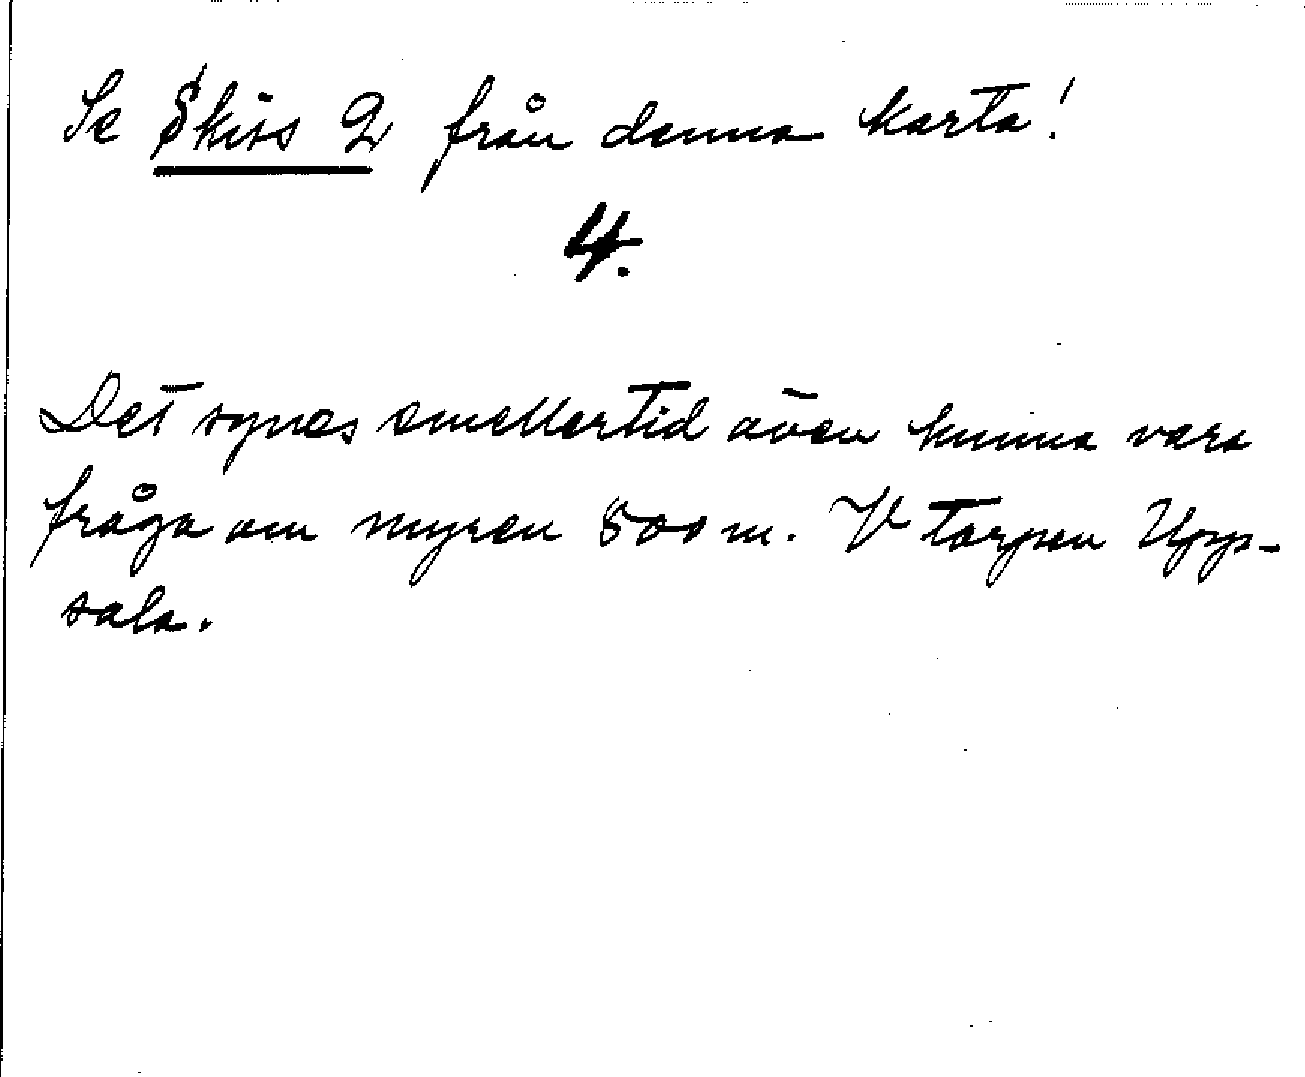 Se Skiss 2 från denna karta!
4.
Det synes emellertid även kunna vara
fråga om myren 500 m. V torpen Upp-
sala.